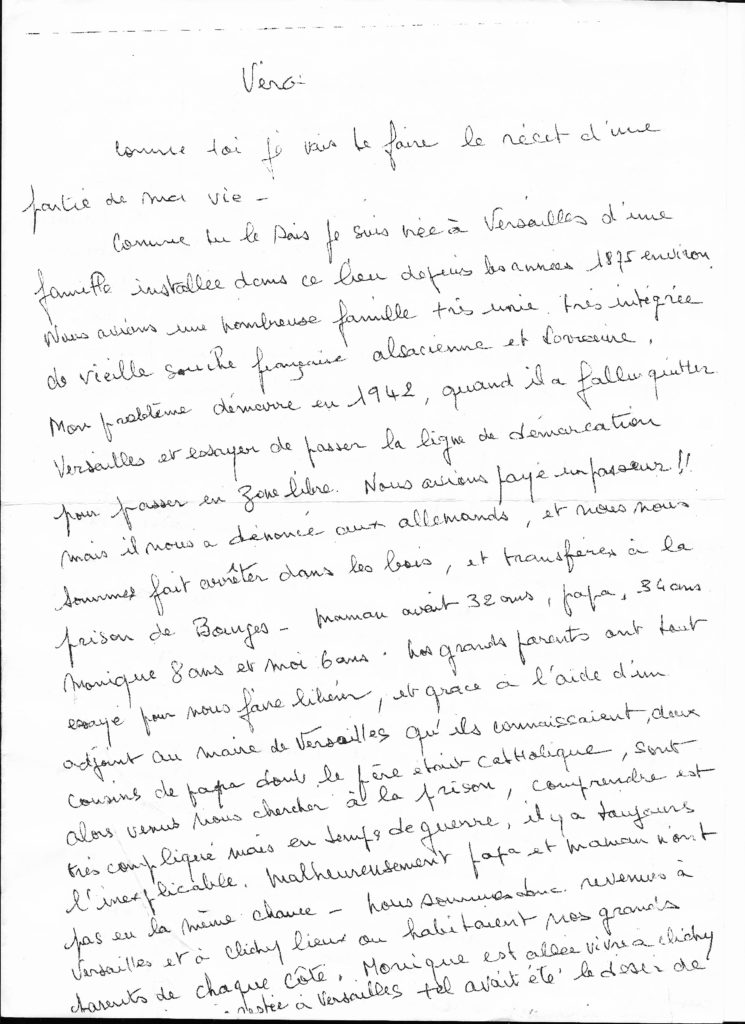 Véro:
Comme toi je vais te faire le récit d'une
partie de ma vie -
Comme tu le sais je suis née à Versailles d'une
famille installée dans ce lieu depuis les années 1875 environ
Nous avions une nombreuse famille très unie. très intégrée
de vieille souche française alsacienne et Lorraine.
Mon problème démarre en 1942, quand il a fallu quitter
Versailles et essayer de passer la ligne de démarcation
pour passer en Zone libre. Nous avions payé un passeur!!
mais il nous a dénoncé aux allemands, et nous nous
sommes fait arrêter dans les bois, et transférés à la
prison de Bourges - Maman avait 32 ans, papa, 34 ans
Monique 8 ans et moi 6 ans. Nos grands parents ont tout
essayé pour nous faire libérer, et grace à l'aide d'un
adjoint au maire de Versailles qu'ils connaissaient, deux
cousins de papa dont le père était catholique, sont
alors venus nous chercher à la prison, comprendre est
très compliqué mais en temps de guerre, il y a toujours
l'inexplicable. Malheureusement papa et maman n'ont
pas eu la même chance - Nous sommes donc revenues à
Versailles et à Clichy lieux ou habitaient nos grands
parents de chaque côté. Monique est allée vivre à Clichy
restée à Versailles tel avait été le désir de